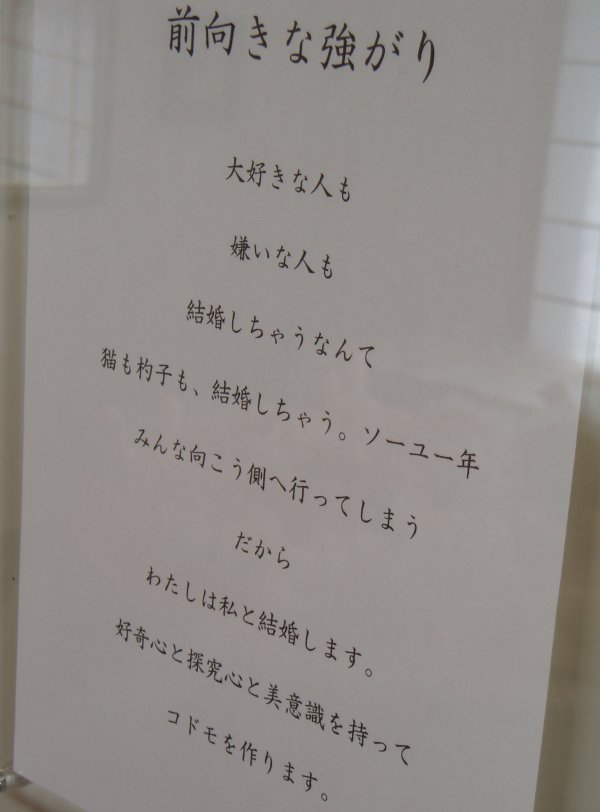 前向きな強がり
大好きな人も
嫌いな人も
結婚しちゃうなんて
猫も杓子も、結婚しちゃう。ソーユー年
みんな向こう側へ行ってしまう
だから
わたしは私と結婚します。
好奇心と探究心と美意識を持って
コドモを作ります。